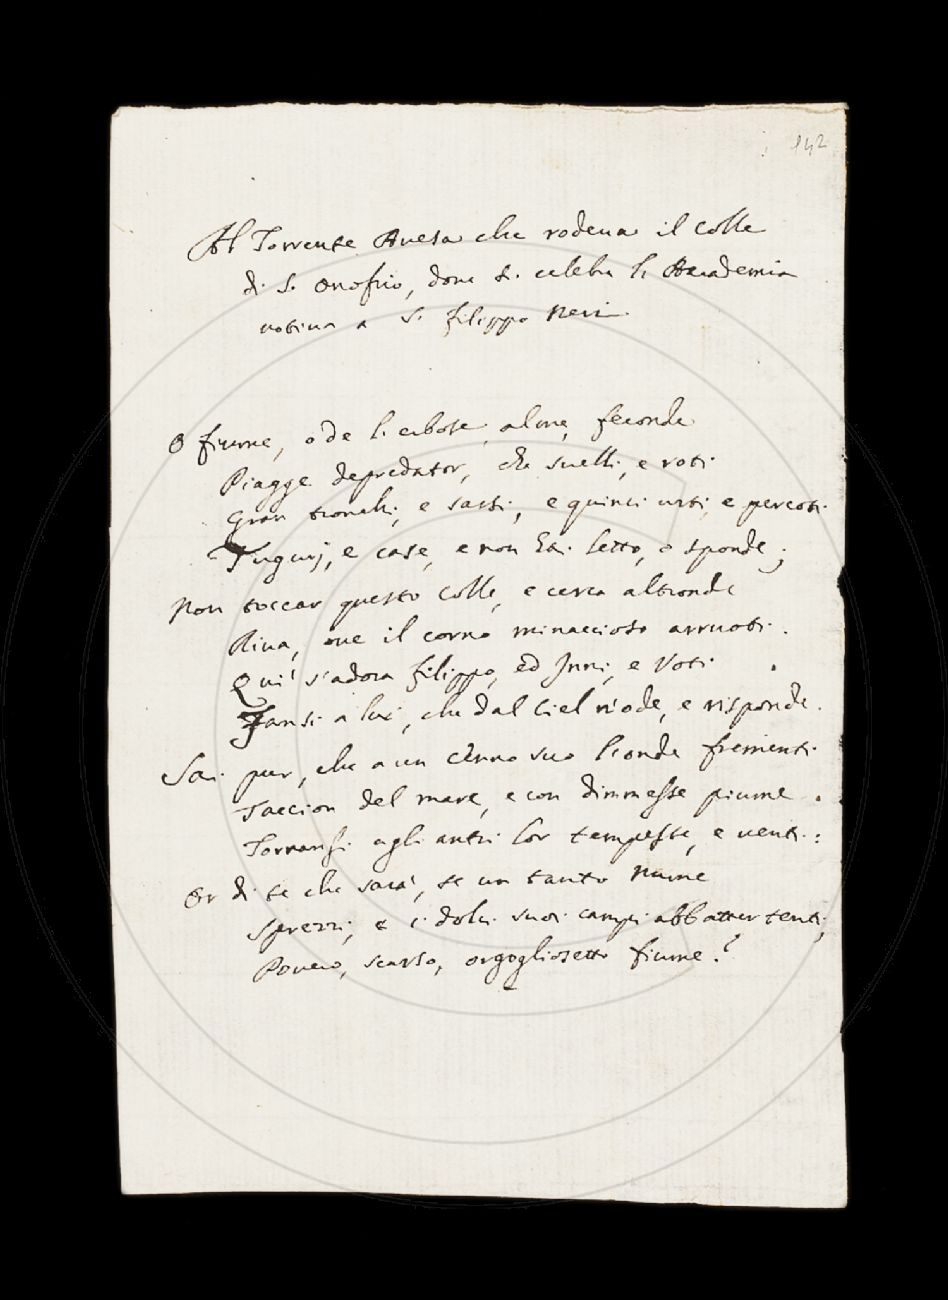 142
Al Torrente Avesa che rodeva il Colle
di S. Onofrio, dove si celebra l'Accademia
votiva a S. Filippo Neri.
O fiume, o de l'erbose, alme, feconde
Piagge depredator, che svelli, e roti
Gran tronchi, e sassi, e quinci urti, e percoti
Tugurj, e case, e non hai letto, o sponde;
Non toccar questo Colle, e cerca altronde
Riva, ove il corno minaccioso arruoti.
Qui s'adora Filippo, ed Inni, e Voti
Fansi a lui, che dal Ciel n'ode, e risponde.
Sai pur, che a un Cenno suo l'onde frementi
Taccion del mare, e con dimmesse piume
Tornansi agli antri lor tempeste, e venti:
Or di te che sarà, se un tanto Nume
Sprezzi, e i dolci suoi campi abbatter tenti,
Povero, scarso, orgogliosetto fiume?